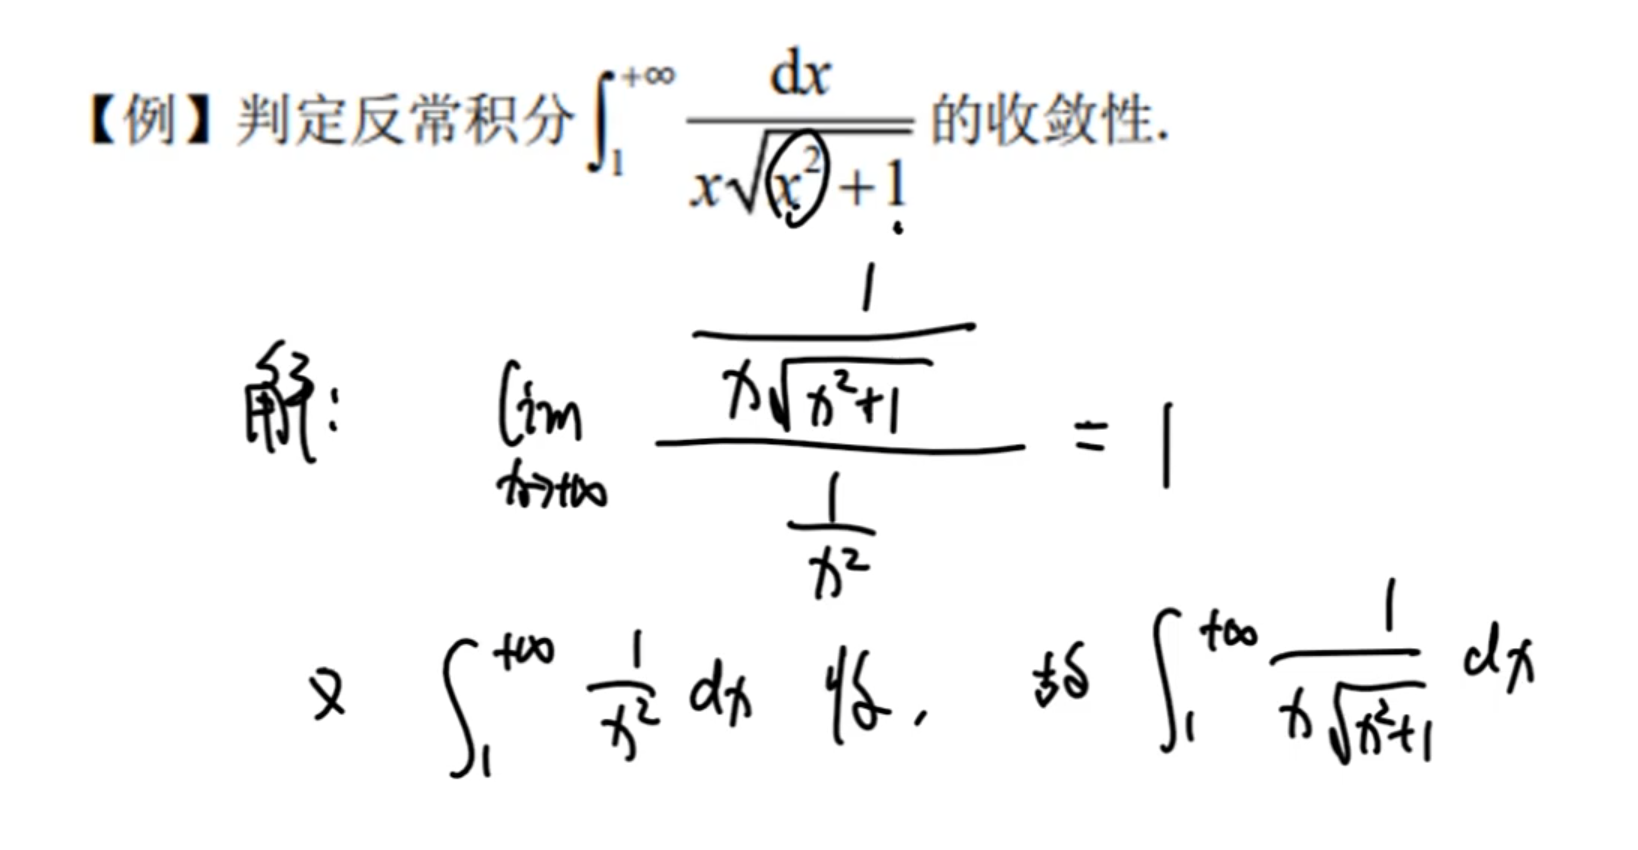 【例】判定反常积分∫₁^{+∞} dx/(x√(x²+1)) 的收敛性.
解: lim_{x→+∞} (1/(x√(x²+1)))/(1/x²) = 1
又 ∫₁^{+∞} 1/x² dx 收, 故 ∫₁^{+∞} 1/(x√(x²+1)) dx